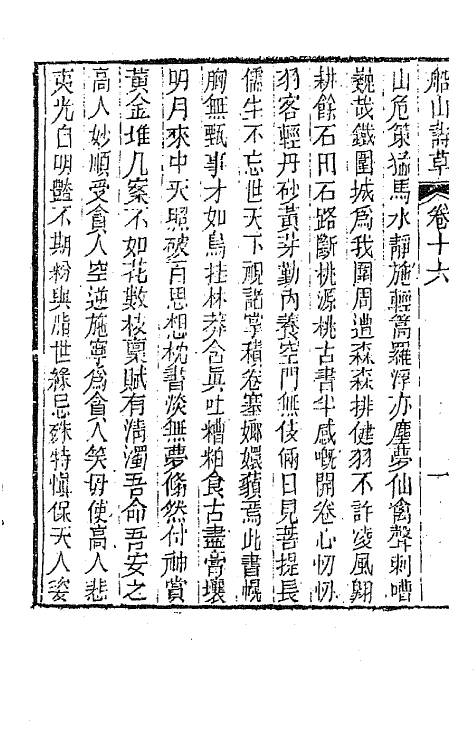 船山詩草 卷十六 一
山危策猛馬水靜施輕篙羅浮亦塵夢仙禽聲刺嘈
巍哉鐵圍城爲我闢周遭森森排健羽不許凌風翱
耕餘石田石路斷桃源桃古書半感慨開卷心忉忉
羽客輕丹砂黃芽勤內養空門無伎倆日見菩提長
儒生不忘世天下視諸掌積卷塞嫏嬛藐焉此書幌
胸無甄事才如鳥挂林莽含眞吐糟粕食古盡膏壤
明月來中天照破百思想枕書淡無夢翛然付神賞
黃金堆几案不如花數枝稟賦有淸濁吾命吾安之
高人妙順受貪人空逆施寧爲貪人笑毋使高人悲
夷光自明艷不期粉與脂世緣忌殊特愼保天人姿